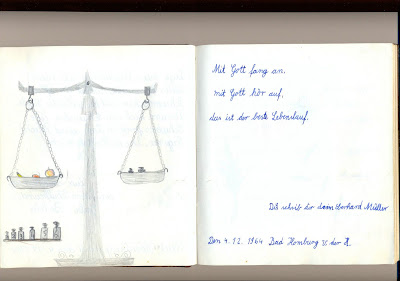 Mit Gott fang an.
mit Gott hör auf,
das ist der beste Lebenslauf.
Dis schrib dir dein Eberhard Müller
Den 4. 12. 1964 Bad Homburg v. der H.